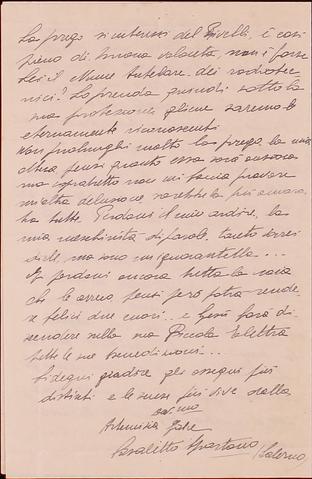 La prego si interessi del Rivelli, è così
pieno di buona volontà, non è forse
Lei il Nume tutelare dei radiotec
nici? Lo prenda quindi sotto la
sua protezione, gliene saremo
eternamente riconoscenti.
Non prolunghi molto la prego, la mia
attesa, pensi quanto essa sarà ansiosa
ma soprattutto non mi faccia provare
un'altra delusione, sarebbe la più amara
fra tutte. Perdoni il mio ardire, la
mia meschinità di parole, tanto vorrei
dirle, ma sono un'ignorantella...
Mi perdoni ancora tutta la noia
che le arreco, pensi però potrà rende
re felici due cuori.. e Gesù farà di
scendere sulla sua Piccola Elettra
tutte le sue benedizioni...
Si degni gradire gli ossequi più
distinti e le scuse più vive dalla
Artemisia
(Salerno)